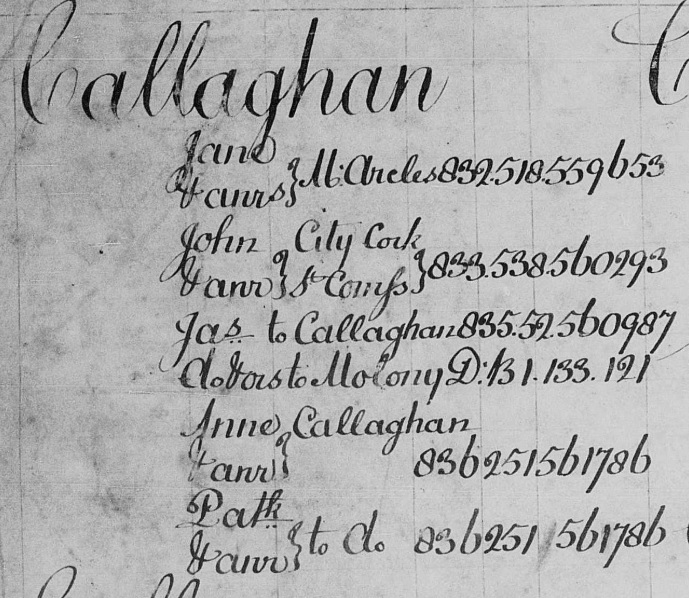 Callaghan
Jane
& anrs } McArdles 832.518.559653
John } City Cork
& anr } & Comrs } 833.538.560293
Jas to Callaghan 835.52.560987
Do & ors to Molony D: B 1. 133. 121
Anne } Callaghan
& anr } 836 251 561786
Patk
& anr } to Do 836 251 561786